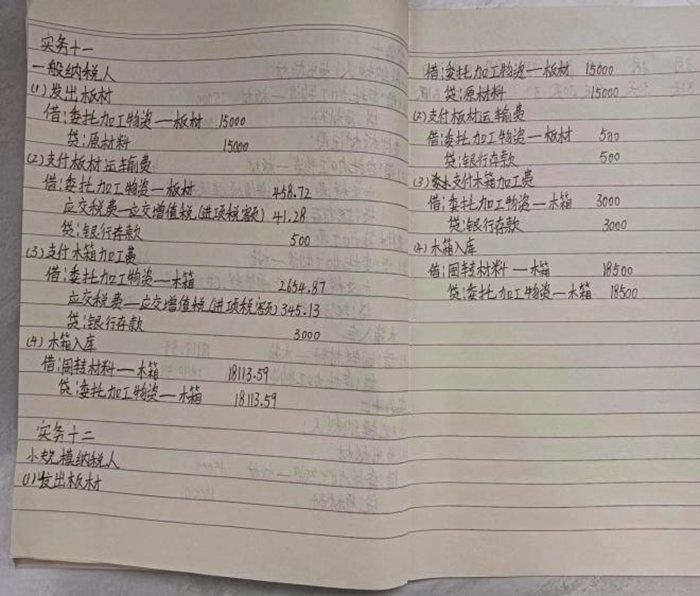 实务十一
一般纳税人
(1)发出板材
借:委托加工物资—板材 15000
贷:原材料 15000
(2)支付板材运输费
借:委托加工物资—板材 458.72
应交税费—应交增值税(进项税额) 41.28
贷:银行存款 500
(3)支付木箱加工费
借:委托加工物资—木箱 2654.87
应交税费—应交增值税(进项税额) 345.13
贷:银行存款 3000
(4)木箱入库
借:周转材料—木箱 18113.59
贷:委托加工物资—木箱 18113.59
实务十二
小规模纳税人
(1)发出板材
借:委托加工物资—板材 15000
贷:原材料 15000
(2)支付板材运输费
借:委托加工物资—板材 500
贷:银行存款 500
(3)支付木箱加工费
借:委托加工物资—木箱 3000
贷:银行存款 3000
(4)木箱入库
借:周转材料—木箱 18500
贷:委托加工物资—木箱 18500